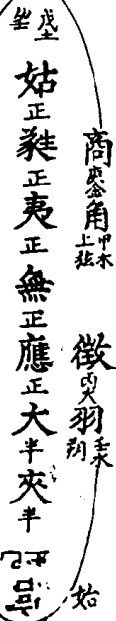 商庚金角甲木上弦
徵丙火羽壬水朔
始
戊土
姑正蕤正夷正無正應正大半夾半